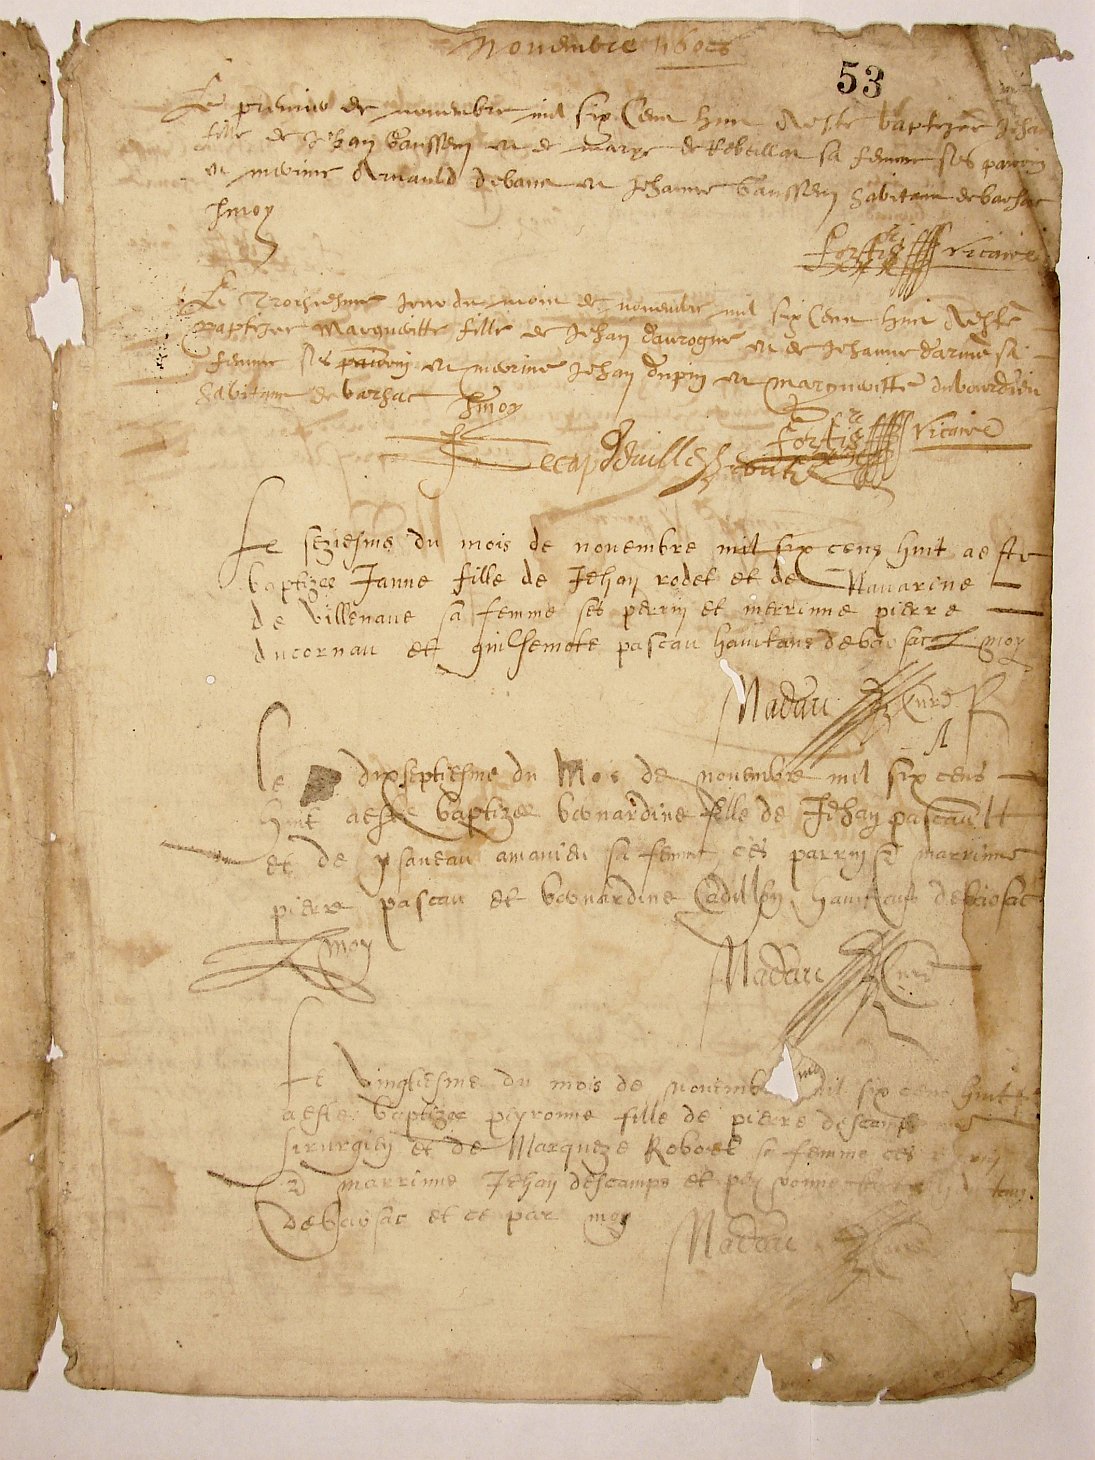 Novembre 1608
53
Le premier de novembre mil six Cens huit Aeste baptizee Jehan
fille de Jehan Baussen et de Marye de sa femme ses parrin
et merine Arnauld et Jehanne Baussen habitans de barsac
moy
Fortis vicaire
Le Troisiesme jour du mois de novembre mil six Cens huit Aeste
Baptizee Marguuitte fille de Jehan et de Jehanne sa
femme ses parrin et merine Jehan dupin et marguuitte dubourdieu
habitans de barsac moy
Fortis vicaire
Le seziesme du mois de novembre mil six cens huit aeste
baptizee Janne fille de Jehan rodet et de Navarine
de villenave sa femme ses perrin et merrinne pierre
ducornau et guilhemote pascau havitans debarsac moy
Madau Curé
Le dixseptiesme du Mois de novembre mil six cens
huit aeste baptizee bernardine fille de Jehan pascault
et de ysaneau amanieu sa femme ces parrin et marrinne
pierre pascau et bernardine Cadillon havitans debarsac
moy
Madau Curé
Le vingtiesme du mois de novemb mil six cens huit
aeste baptizee peyronne fille de pierre descamps
sirurgien et de Marqueze Roboet sa femme ces
et marrinne Jehan descamps et peyronne
debarsac et ce par moy
Madau Curé